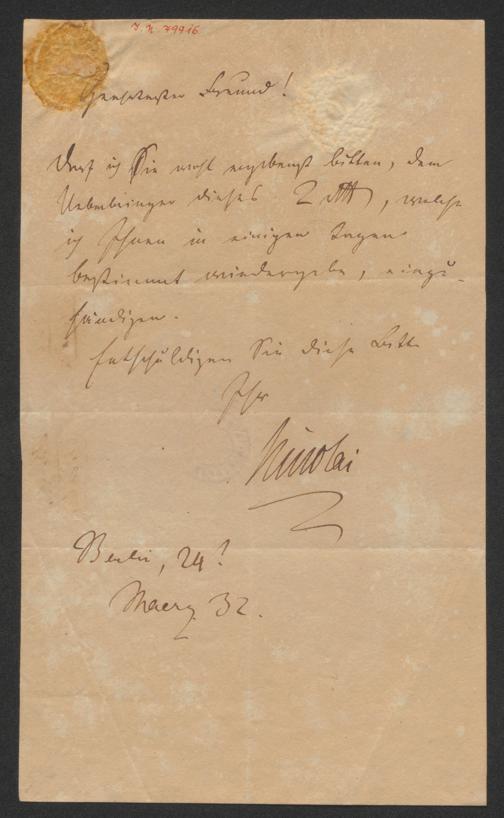 J. N. 79916
Geehrtester Freund!
Darf ich Sie wohl ergebenst bitten, dem
Ueberbringer dieses 2 , welche
ich Ihnen in einigen Tagen
bestimmt wiedergebe, einzu-
händigen.
Entschuldigen Sie diese Bitte
Ihr
Nicolai
Berlin, 24
Maerz 32.